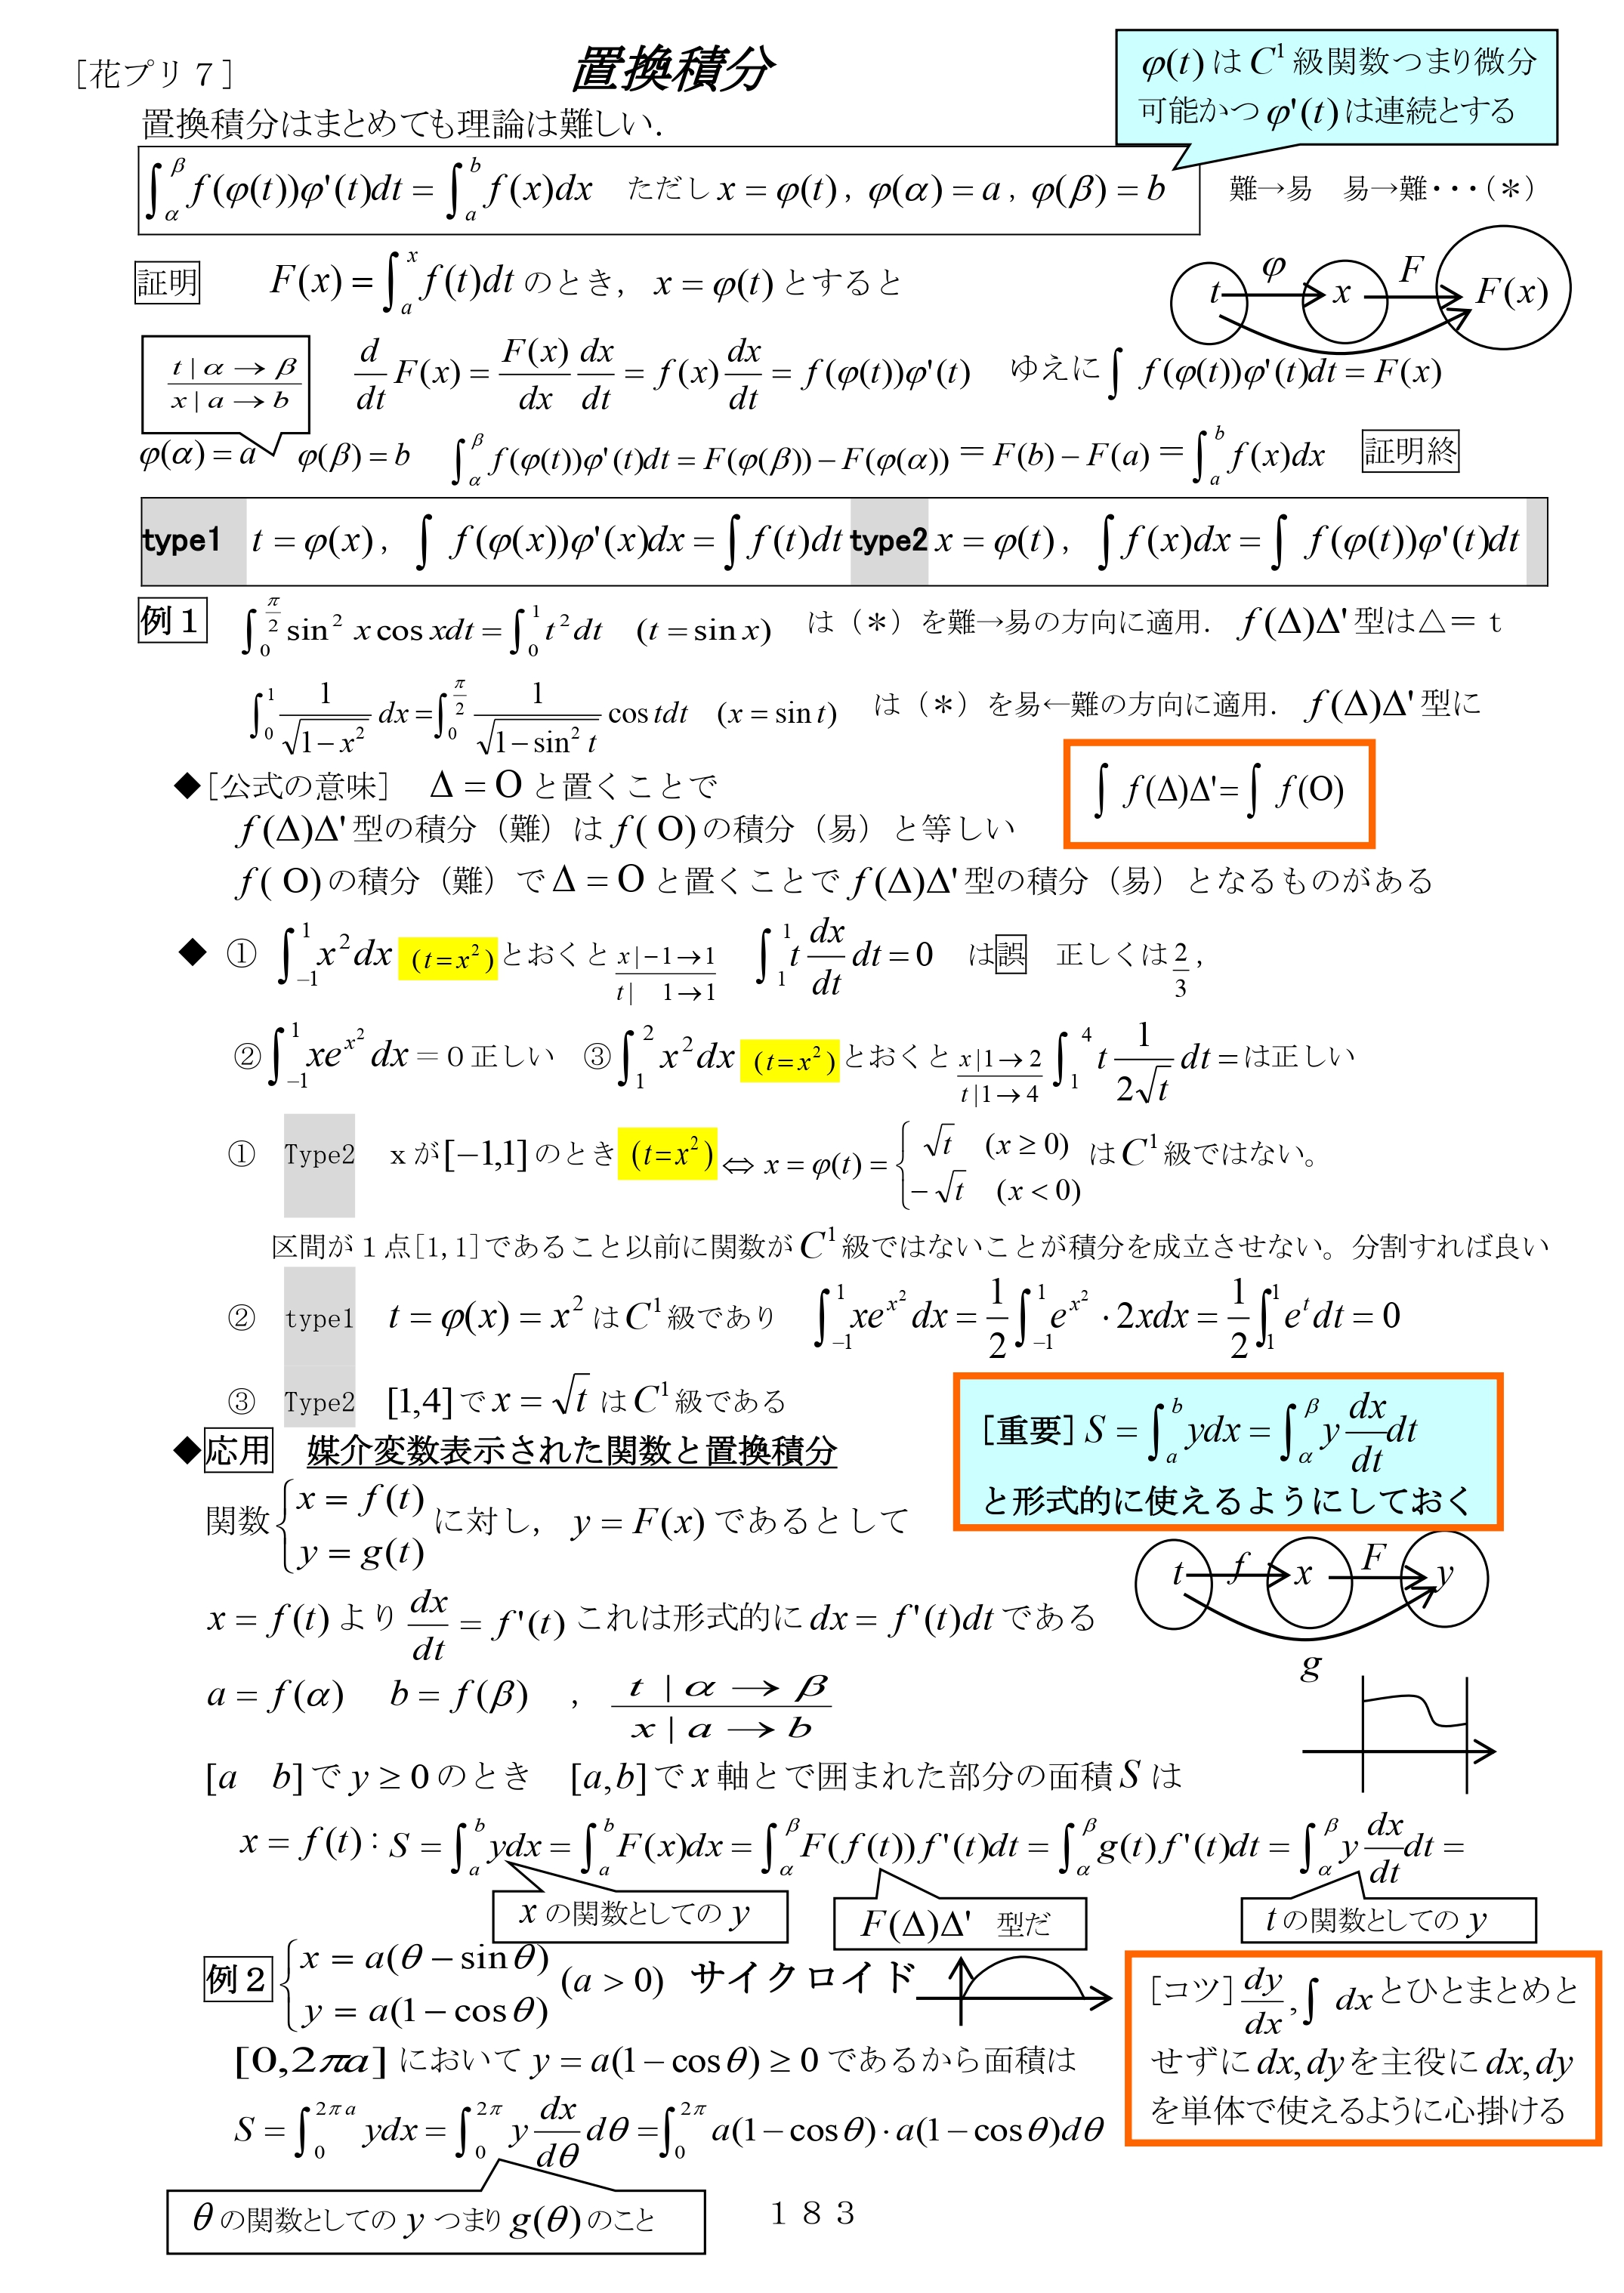 ［花プリ７］ 置換積分
φ(t)はC¹級関数つまり微分
可能かつφ'(t)は連続とする
置換積分はまとめても理論は難しい.
∫_α^β f(φ(t))φ'(t)dt = ∫_a^b f(x)dx ただし x = φ(t), φ(α) = a, φ(β) = b 難→易 易→難・・・(＊)
証明 F(x) = ∫_a^x f(t)dt のとき, x = φ(t) とすると
t φ x F F(x)
t | α → β
x | a → b
d/dt F(x) = F(x)/dx dx/dt = f(x) dx/dt = f(φ(t))φ'(t) ゆえに ∫ f(φ(t))φ'(t)dt = F(x)
φ(α) = a φ(β) = b ∫_α^β f(φ(t))φ'(t)dt = F(φ(β)) − F(φ(α)) ＝ F(b) − F(a) ＝ ∫_a^b f(x)dx 証明終
type1 t = φ(x), ∫ f(φ(x))φ'(x)dx = ∫ f(t)dt type2 x = φ(t), ∫ f(x)dx = ∫ f(φ(t))φ'(t)dt
例１ ∫_0^{π/2} sin² x cos xdt = ∫_0^1 t²dt (t = sin x) は（＊）を難→易の方向に適用. f(Δ)Δ'型は△＝ｔ
∫_0^1 1/√(1−x²) dx = ∫_0^{π/2} 1/√(1−sin² t) cos tdt (x = sin t) は（＊）を易←難の方向に適用. f(Δ)Δ'型に
◆［公式の意味］ Δ = O と置くことで
∫ f(Δ)Δ' = ∫ f(O)
f(Δ)Δ'型の積分（難）は f( O)の積分（易）と等しい
f( O)の積分（難）で Δ = O と置くことで f(Δ)Δ'型の積分（易）となるものがある
◆ ① ∫_{−1}^1 x²dx (t=x²)とおくと x|−1→1 / t| 1→1 ∫_1^1 t dx/dt dt = 0 は誤 正しくは 2/3,
② ∫_{−1}^1 xe^{x²} dx = 0 正しい ③ ∫_1^2 x²dx (t=x²)とおくと x|1→2 / t|1→4 ∫_1^4 t 1/(2√t) dt = は正しい
① Type2 xが[−1,1]のとき (t=x²) ⇔ x = φ(t) = { √t (x ≥ 0) −√t (x < 0) はC¹級ではない。
区間が１点[1,1]であること以前に関数がC¹級ではないことが積分を成立させない。分割すれば良い
② type1 t = φ(x) = x² はC¹級であり ∫_{−1}^1 xe^{x²} dx = 1/2 ∫_{−1}^1 e^{x²}·2xdx = 1/2 ∫_1^1 e^t dt = 0
③ Type2 [1,4]で x = √t はC¹級である
[重要] S = ∫_a^b ydx = ∫_α^β y dx/dt dt
と形式的に使えるようにしておく
◆応用 媒介変数表示された関数と置換積分
関数 { x = f(t) y = g(t) に対し, y = F(x) であるとして
t f x F y
g
x = f(t) より dx/dt = f'(t) これは形式的に dx = f'(t)dt である
a = f(α) b = f(β) , t | α → β / x | a → b
[a b]で y ≥ 0 のとき [a,b]で x 軸とで囲まれた部分の面積 S は
x = f(t) : S = ∫_a^b ydx = ∫_a^b F(x)dx = ∫_α^β F(f(t))f'(t)dt = ∫_α^β g(t)f'(t)dt = ∫_α^β y dx/dt dt =
x の関数としての y
F(Δ)Δ' 型だ
t の関数としての y
例２ { x = a(θ − sin θ) y = a(1 − cos θ) (a > 0) サイクロイド
[コツ] dy/dx, ∫ dx とひとまとめと
せずに dx, dy を主役に dx, dy
を単体で使えるように心掛ける
[0,2πa] において y = a(1 − cos θ) ≥ 0 であるから面積は
S = ∫_0^{2πa} ydx = ∫_0^{2π} y dx/dθ dθ = ∫_0^{2π} a(1 − cos θ)·a(1 − cos θ)dθ
θ の関数としての y つまり g(θ) のこと
１８３